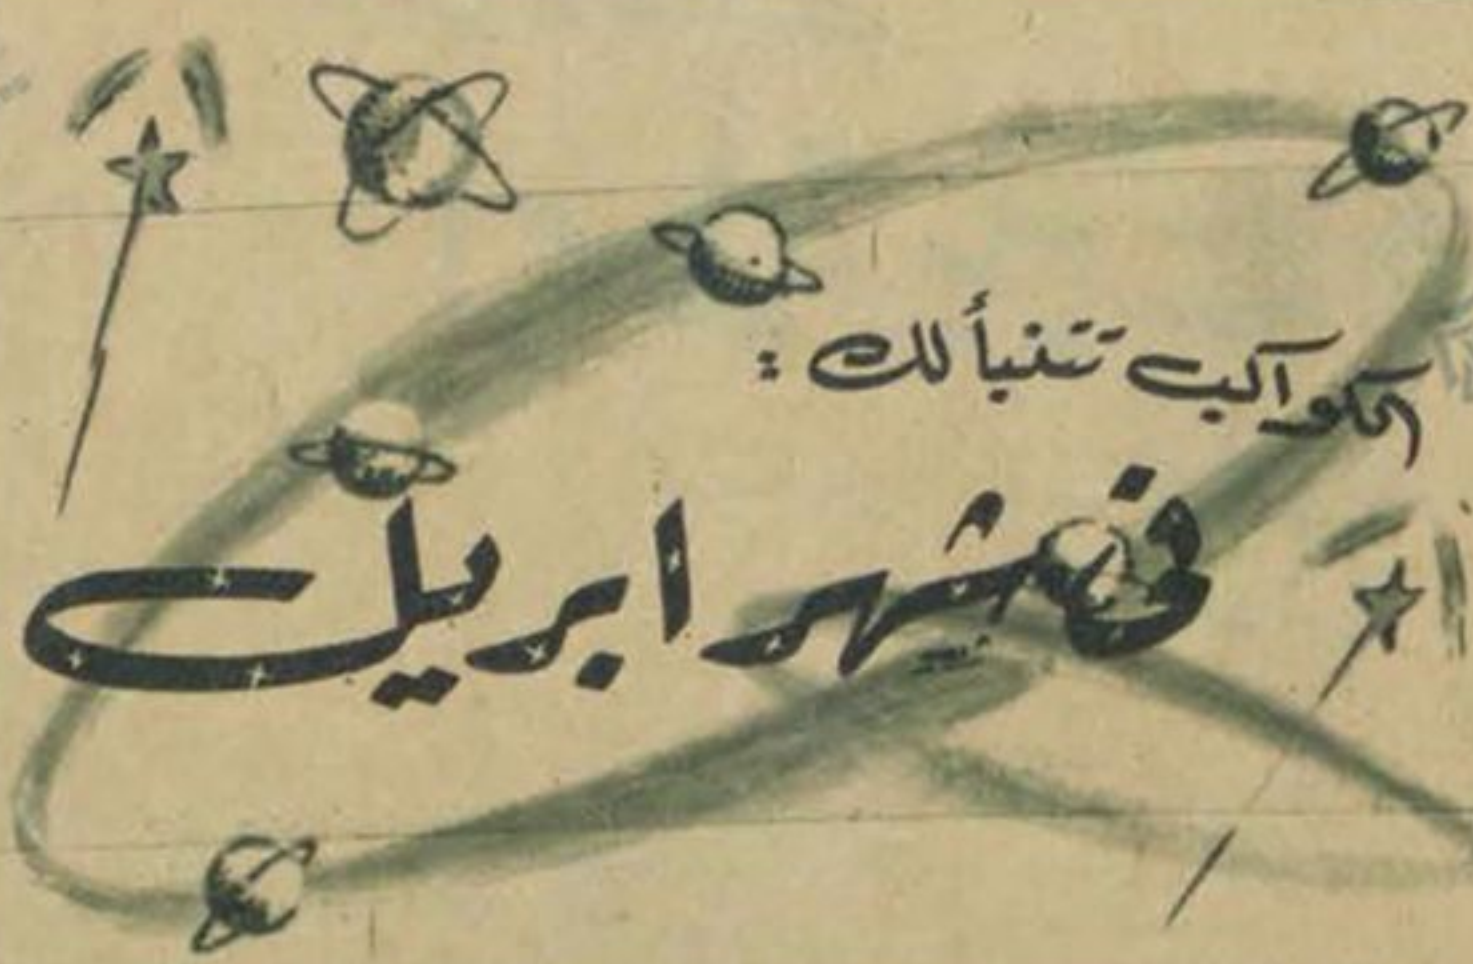 الكواكب تتنبأ لك :
فى شهر ابريل